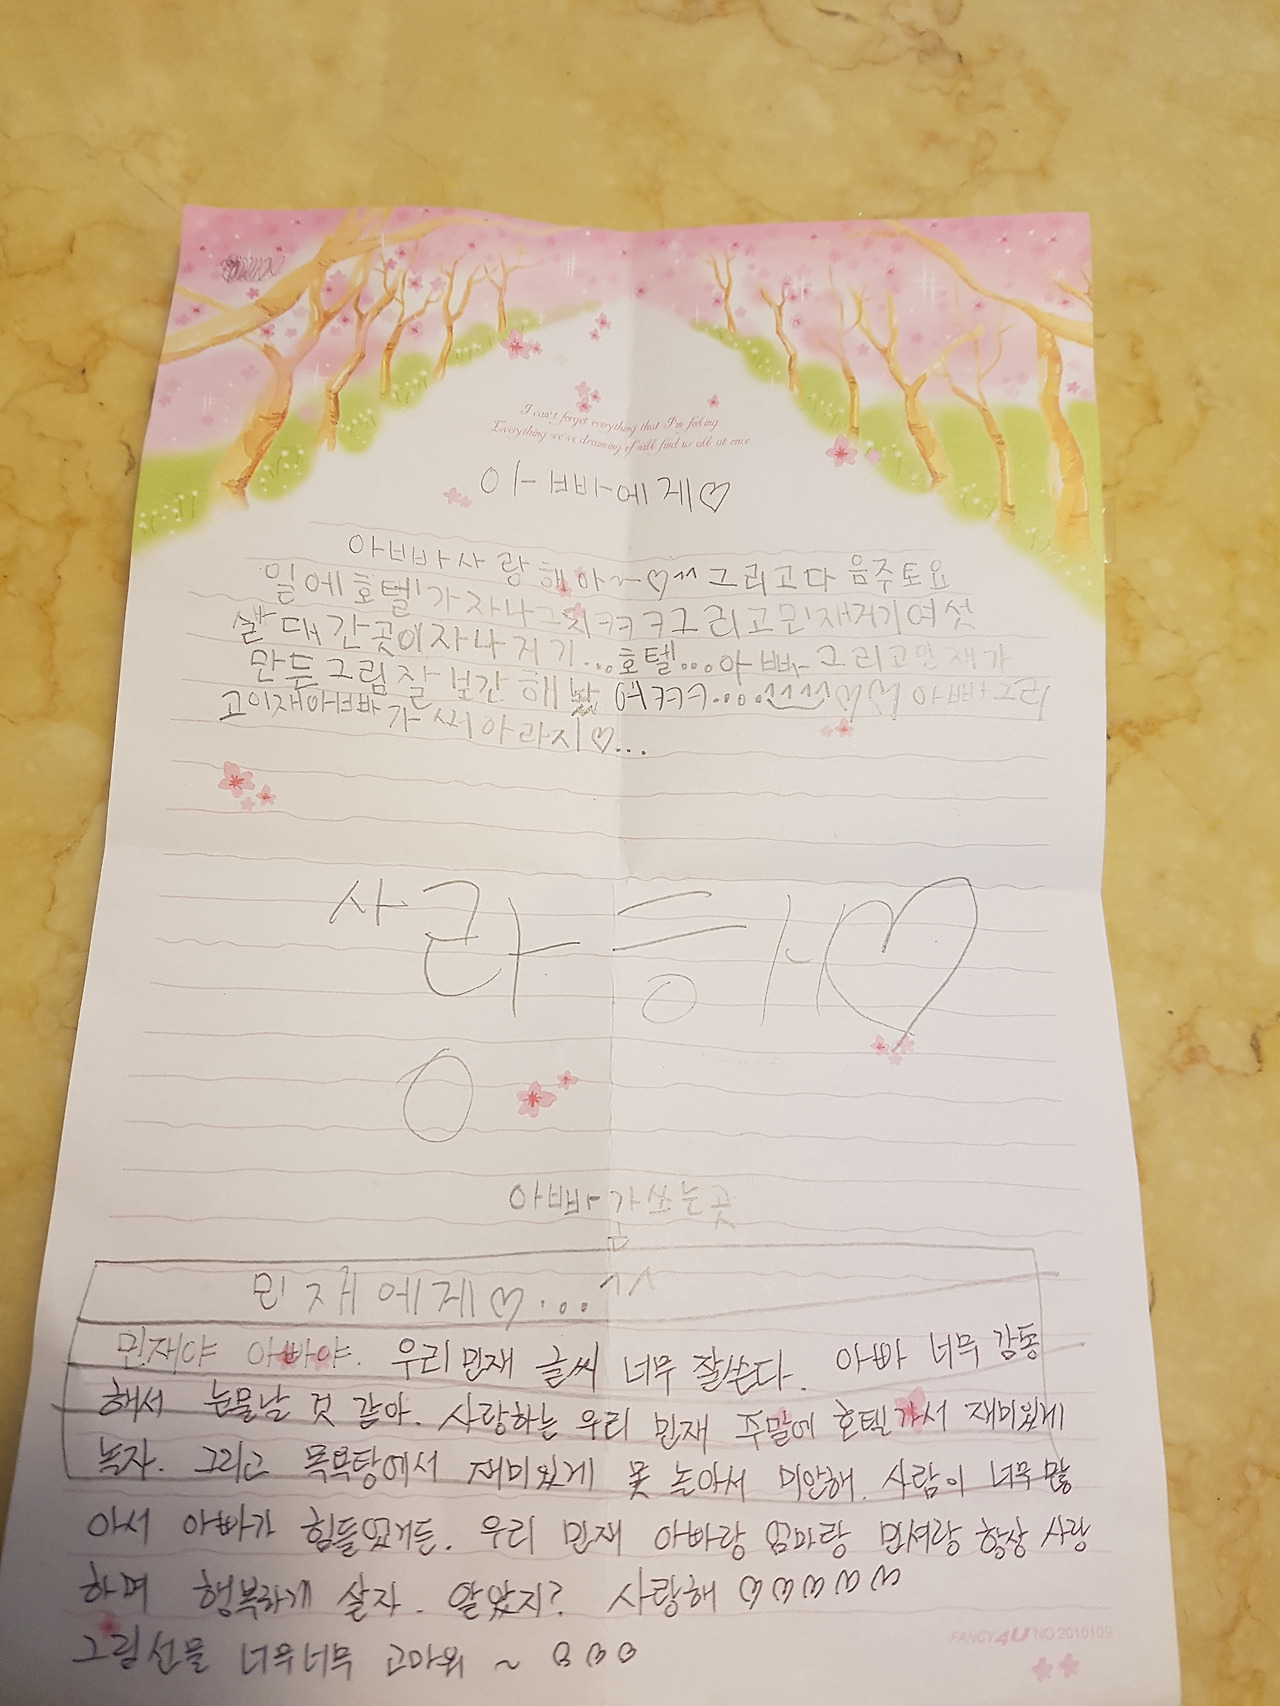 I can't forget everything that I'm feeling
Everything we're dreaming of will find us all at once
아빠에게♡
아빠사랑해아~♡^^그리고다음주토요
일에호텔가자나그치ㅋㅋㅋ그리고민재저기여섯
살때간곳이자나저기...호텔...아빠그리고민재가
만든그림잘보간해놨어ㅋㅋㅋ....^^^^♡♡아빠그리
고이재아빠가써아라지♡...
사랑해♡
아빠가쓰는곳
민재에게♡...^^
민재야 아빠야. 우리민재 글씨 너무 잘쓴다. 아빠 너무 감동
해서 눈물날 것 같아. 사랑하는 우리 민재 주말에 호텔가서 재미있게
놀자. 그리고 목욕탕에서 재미있게 못 놀아서 미안해. 사람이 너무 많
아서 아빠가 힘들었거든. 우리 민재 아빠랑 엄마랑 민서랑 항상 사랑
하며 행복하게 살자. 알았지? 사랑해 ♡♡♡♡♡♡
그림선물 너무너무 고마워 ~ ♡♡♡
FANCY4U NO.2010109